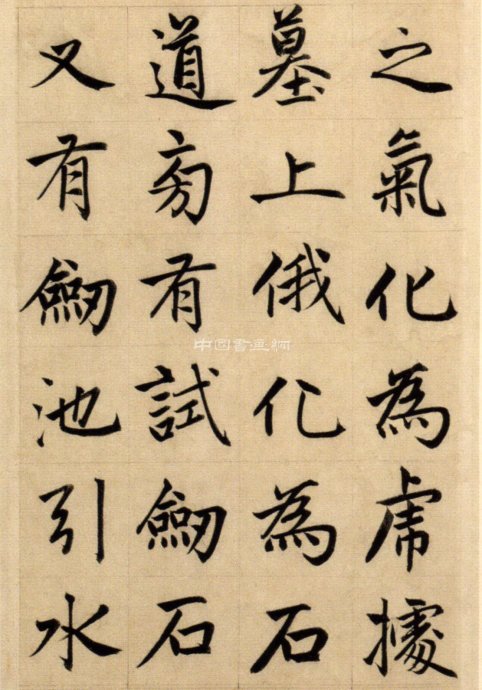 之氣化為虎據
墓上俄化為石
道旁有試劒石
又有劒池引水
中国書画網